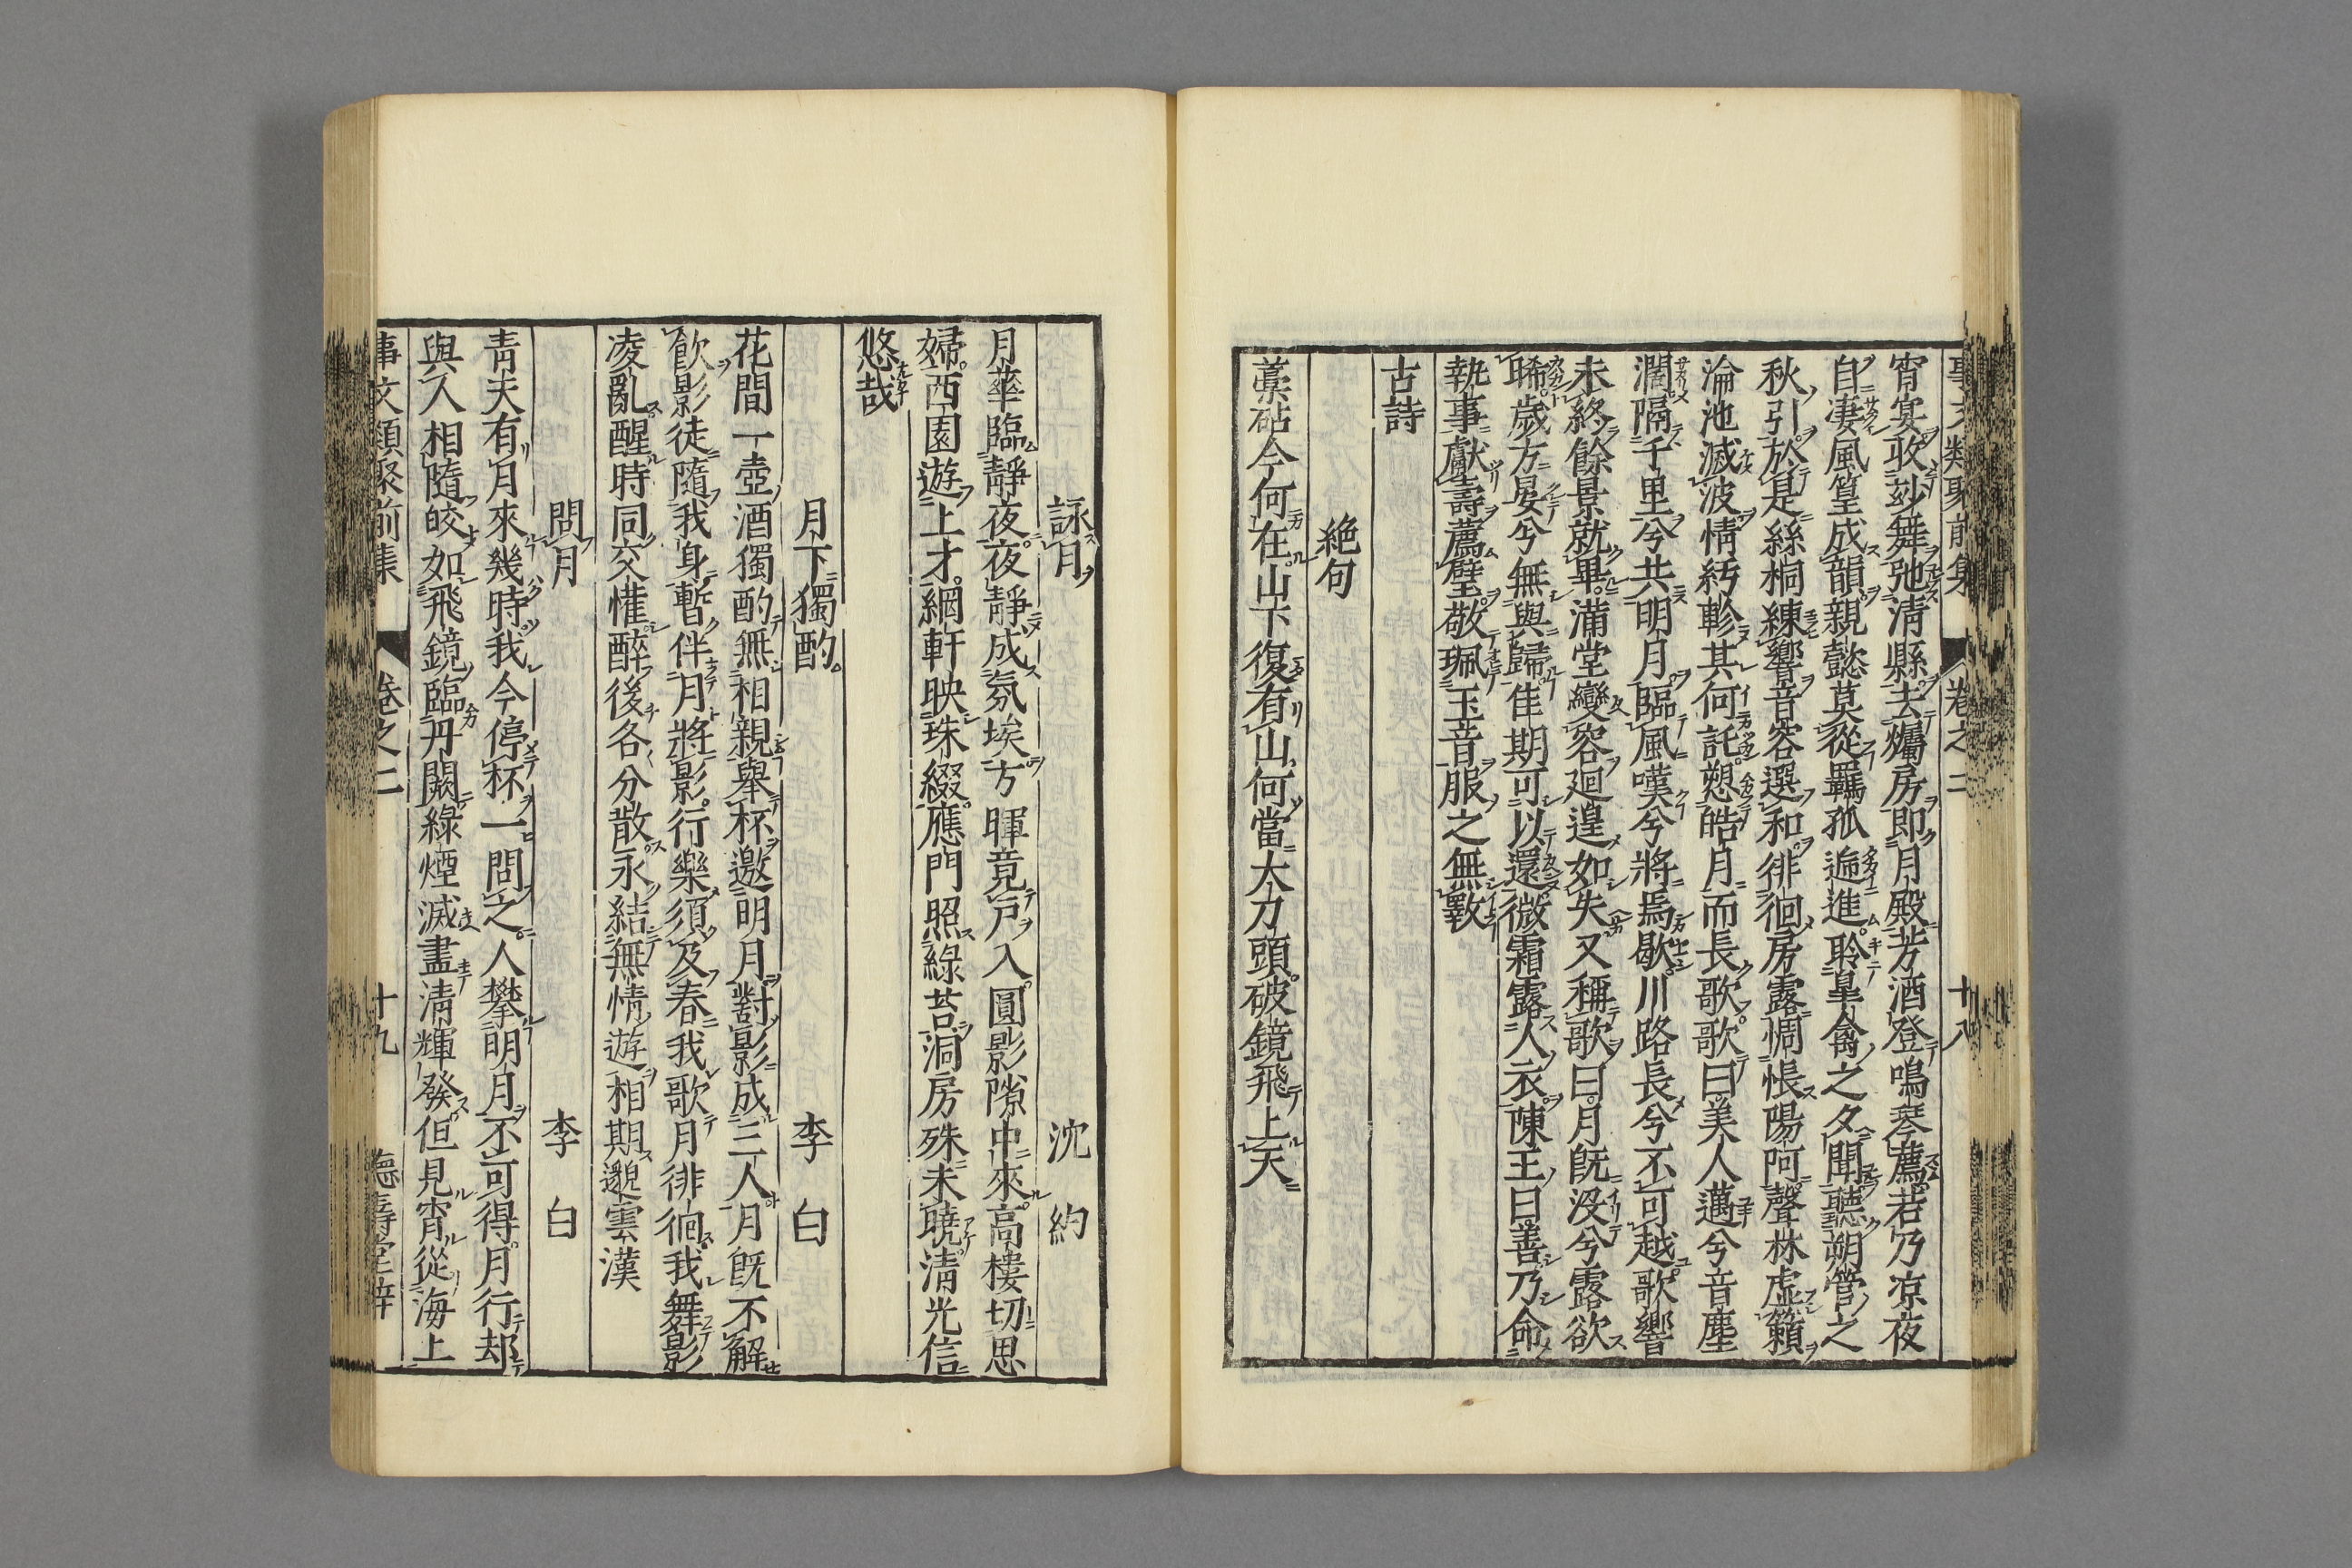 事文類聚前集 卷之二 十八
宵宴收玅舞弛淸縣去燭房卽月殿芳酒登鳴琴薦若乃凉夜
自凄風篁成韻親懿莫從羈孤遞進聆皐禽之夕聞聽朔管之
秋引於是絲桐練響音容選和徘徊房露惆悵陽阿聲林虛籟
淪池滅波情紆軫其何託愬皓月而長歌歌曰美人邁兮音塵
濶隔千里兮共明月臨風嘆兮將焉歇川路長兮不可越歌響
未終餘景就畢滿堂變容廻遑如失又稱歌曰月旣沒兮露欲
晞歲方晏兮無與歸佳期可以還微霜露人衣陳王曰善乃命
執事獻壽薦璧敬珮玉音服之無斁
古詩
絕句
藁砧今何在山下復有山何當大刀頭破鏡飛上天
詠月 沈約
月華臨靜夜夜靜成氛埃方暉竟戶入圓影隙中來高樓切思
婦西園遊上才網軒映珠綴應門照綠苔洞房殊未曉淸光信
悠哉
月下獨酌 李白
花間一壺酒獨酌無相親舉杯邀明月對影成三人月旣不解
飮影徒隨我身暫伴月將影行樂須及春我歌月徘徊我舞影
凌亂醒時同交懽醉後各分散永結無情遊相期邈雲漢
問月 李白
靑天有月來幾時我今停杯一問之人攀明月不可得月行却
與人相隨皎如飛鏡臨丹闕綠煙滅盡淸輝發但見宵從海上
事文類聚前集 卷之二 十九